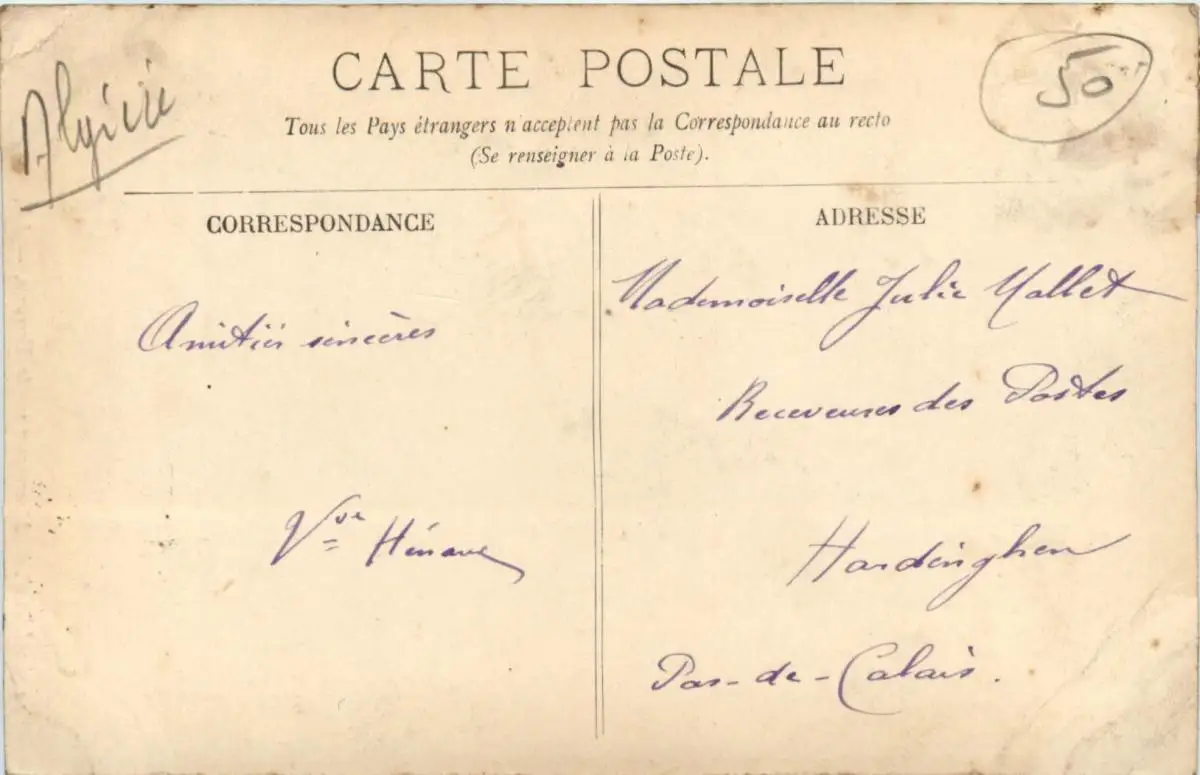 Algérie
50
CARTE POSTALE
Tous les Pays étrangers n'acceptent pas la Correspondance au recto
(Se renseigner à la Poste).
CORRESPONDANCE
Amitiés sincères
Vve Hénave
ADRESSE
Mademoiselle Julie Mallet
Receveuses des Postes
Hardinghen
Pas-de-Calais.